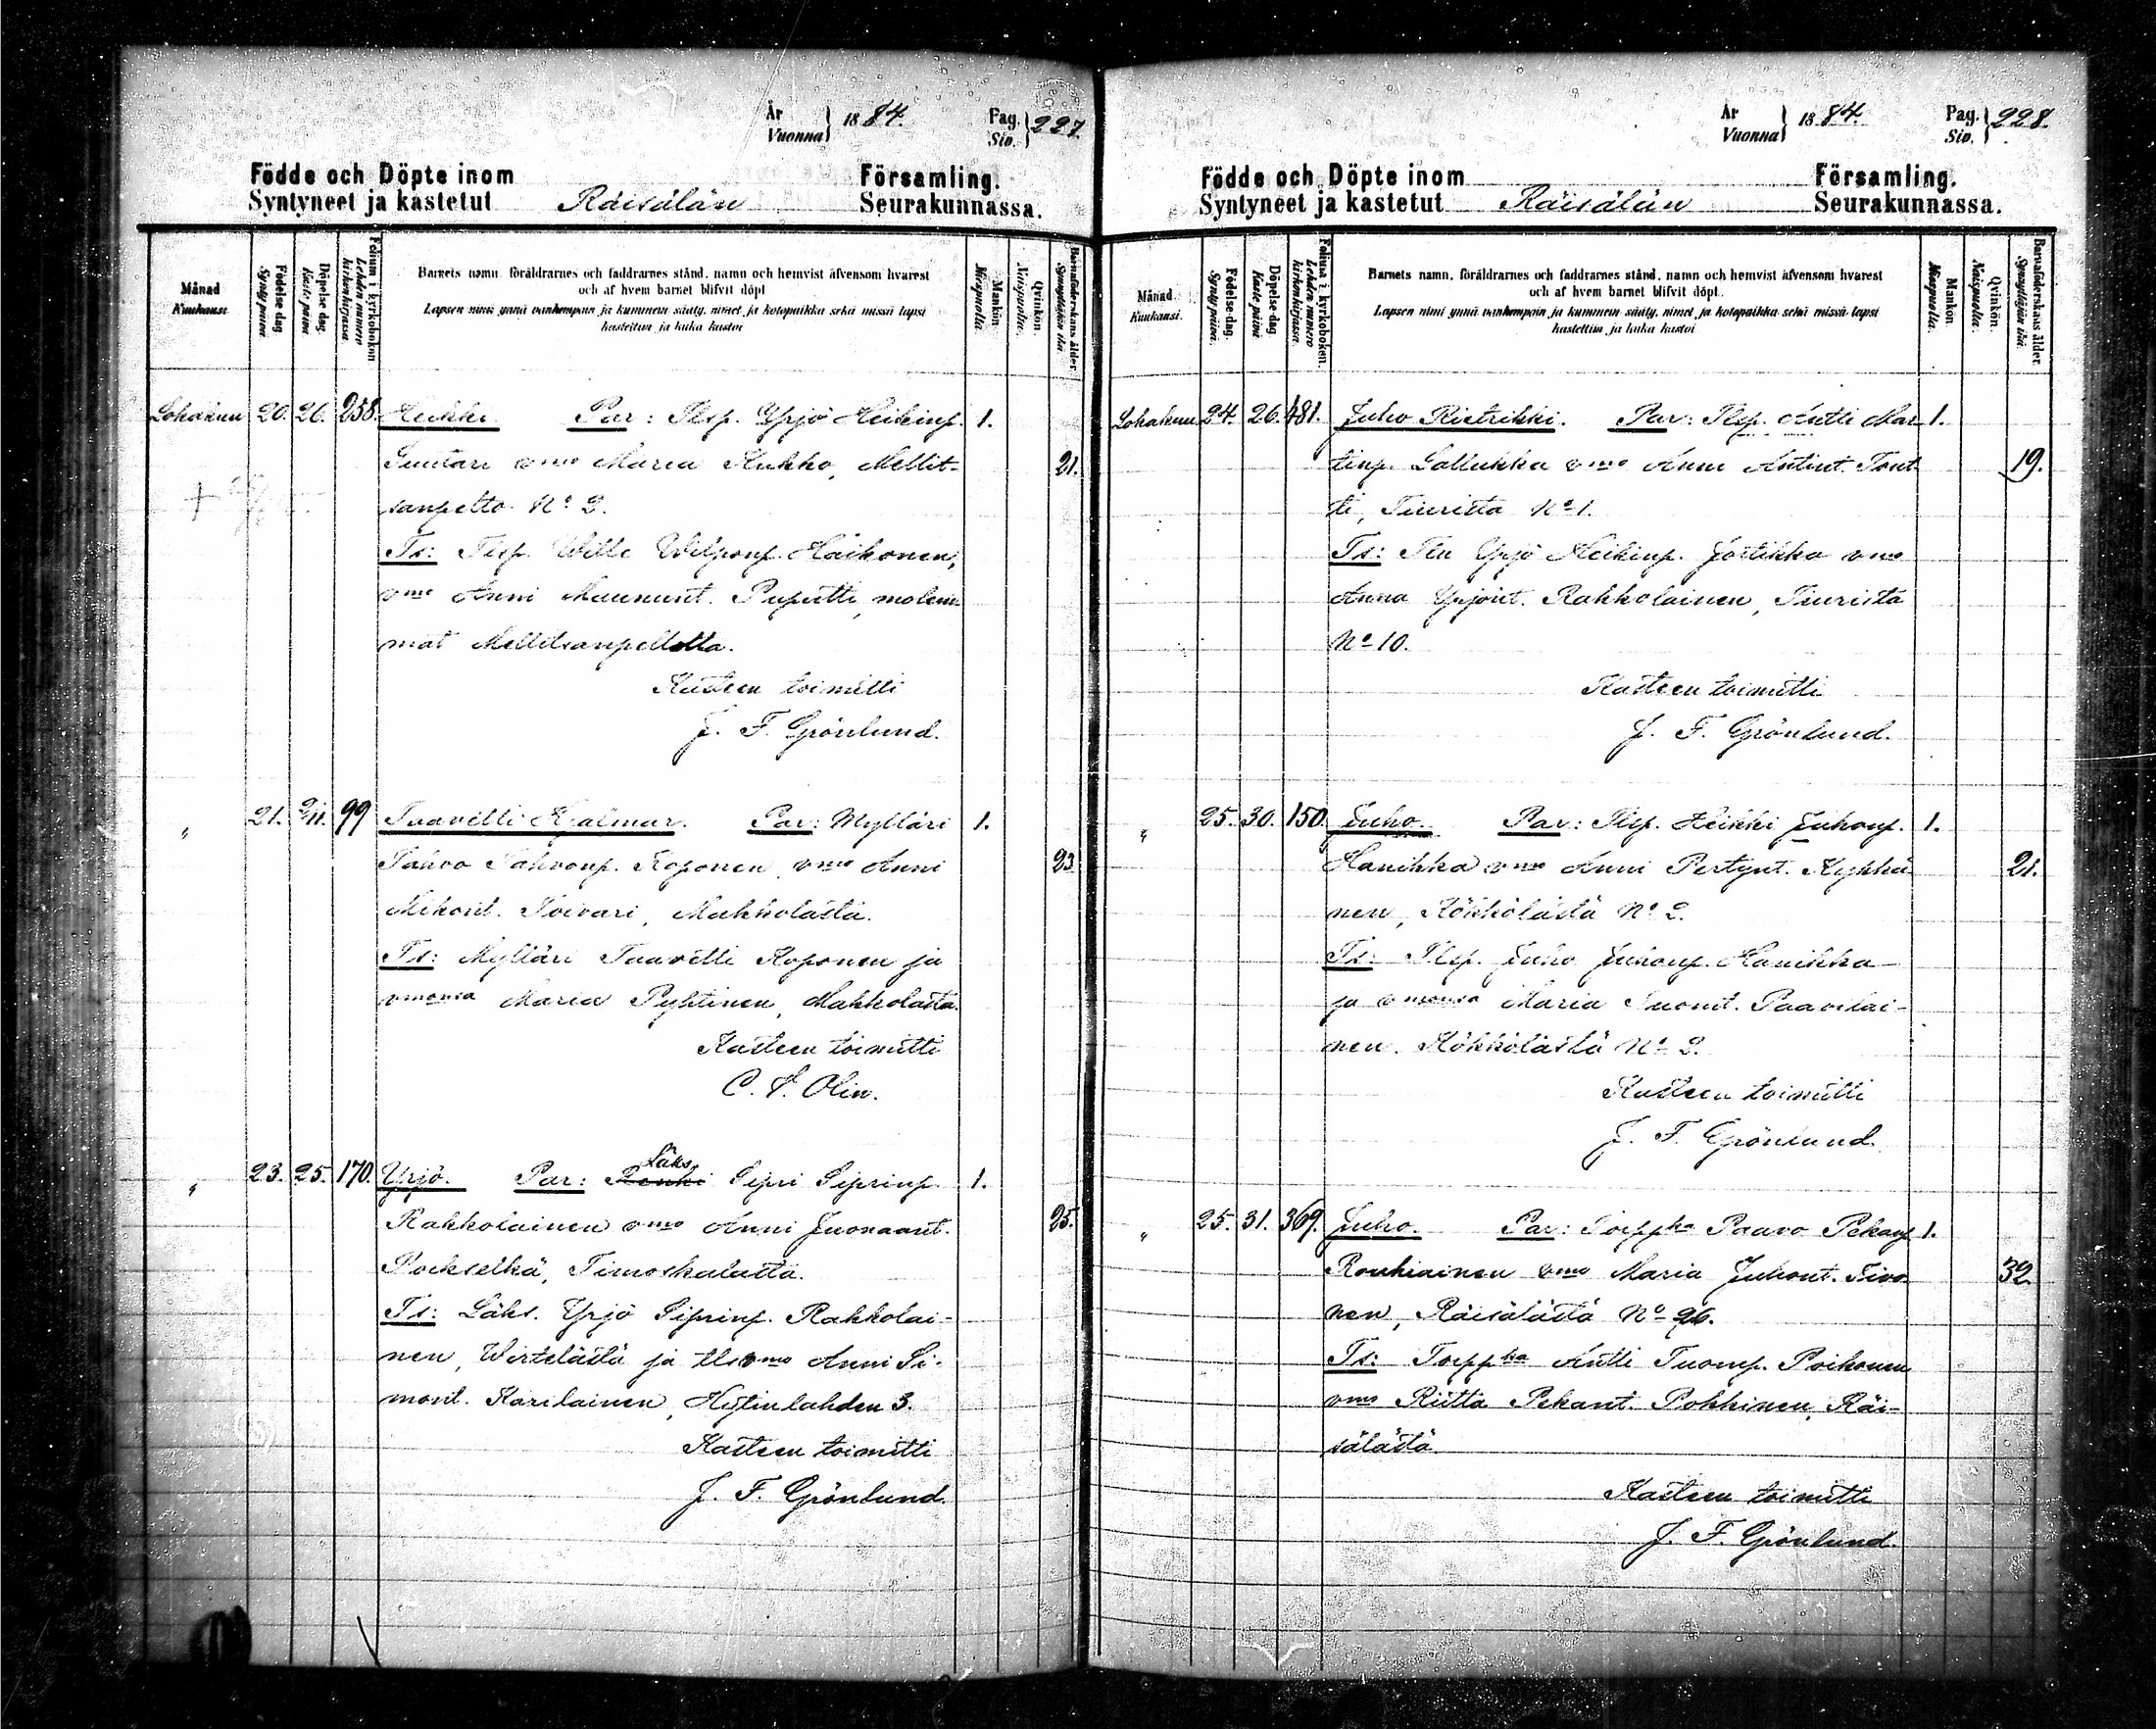 År
Vuonna } 1884.
Pag.
Siv. } 227.
Födde och Döpte inom Församling.
Syntyneet ja kastetut Räisälän Seurakunnassa.
Månad
Kuukausi
Födelse-dag
Syntypäivä
Döpelse-dag
Kaste päivä
Folium i kyrkoboken
Lehden numero kirkonkirjassa
Barnets namn, föräldrarnes och faddrarnes stånd, namn och hemvist äfvensom hvarest
och af hvem barnet blifvit döpt
Lapsen nimi ynnä vanhempain ja kummein sääty, nimet, ja kotopaikka sekä missä lapsi
kastettiin ja kuka kastoi
Mankön
Miespuolia
Qvinkön
Naispuolia
Barnaföderskans ålder
Synnyttäjän ikä
Lohakuu 20. 26. 258. Heikki. Par: Tlsp. Yrjö Heikinp. 1.
vmo Maria Kukko, Mellit- 21.
sanpelto No 2.
Ts: Tlsp. Wille Häikonen,
vmo Anni Maununt. Puputti, molem-
mat Mellitsanpellotta.
Kasteen toimitti
J. F. Grönlund.
" 21. 2/11. 99 Taavitti Hjalmar. Par: Mylläri 1.
Tahvo Tahvonp. Koponen vmo Anni 23
Mikont. Toivari, Makkolasta.
Ts: Mylläri Taavetti Koponen ja
vmonsa Maria Pyhtinen, Makkolasta.
Kasteen toimitti
C. Olin.
Läks.
" 23. 25. 170. Yrjö. Par: Renki Sipri Siprinp. 1.
Rakkolainen vmo Anni Juonaant. 25.
Pockselkä, Timoskalasta.
Ts: Läks. Yrjö Siprinp. Rakkolai-
nen, Wirtelästä ja tls vmo Anni Si-
mont. Karilainen, Hytinlahden 3.
Kasteen toimitti
J. F. Grönlund.
År
Vuonna } 1884.
Pag.
Siv. } 228.
Födde och Döpte inom Församling.
Syntyneet ja kastetut Räisälän Seurakunnassa.
Månad.
Kuukausi.
Födelse-dag.
Syntypäivä.
Döpelse-dag
Kaste päivä
Folium i kyrkoboken.
Lehden numero kirkonkirjassa.
Barnets namn, föräldrarnes och faddrarnes stånd, namn och hemvist äfvensom hvarest
och af hvem barnet blifvit döpt.
Lapsen nimi ynnä vanhempain ja kummein sääty, nimet, ja kotopaikka sekä missä lapsi
kastettiin ja kuka kastoi
Mankön
Miespuolia.
Qvinkön.
Naispuolia.
Barnaföderskans ålder.
Synnyttäjän ikä.
Lohakuu 24. 26. 481. Juho Rietrikki. Par: Tlsp. Antti Mar 1.
tinp. Lallukka vmo Anni Antint. Tont 19.
ti, Tiurista No 1.
Ts: Yrjö Heikinp. Jortikka vmo
Anna Yrjönt. Rakkolainen, Tiurista
No 10.
Kasteen toimitti
J. F. Grönlund.
" 25. 30. 150. Juho. Par: Tlsp. Heikki Juhonp. 1.
Hanikka vmo Anni Pertynt. Kykkä 21.
nen, Kökkölästä No 2.
Ts: Tlsp. Juho Juhonp. Hanikka
ja vmonsa Maria Paavilai-
nen. Kökkölästä No 2.
Kasteen toimitti
J. F. Grönlund.
" 25. 31. 369. Juho. Par: Torppka Paavo Pekanp 1.
Roukiainen vmo Maria Juhont. Sivo 32.
nen, Räisälästä No 26.
Ts: Torppka Antti Tuomp. Poikonen
vmo Riitta Pekant. Pokkinen, Räi-
sälästä
Kasteen toimitti
J. F. Grönlund.